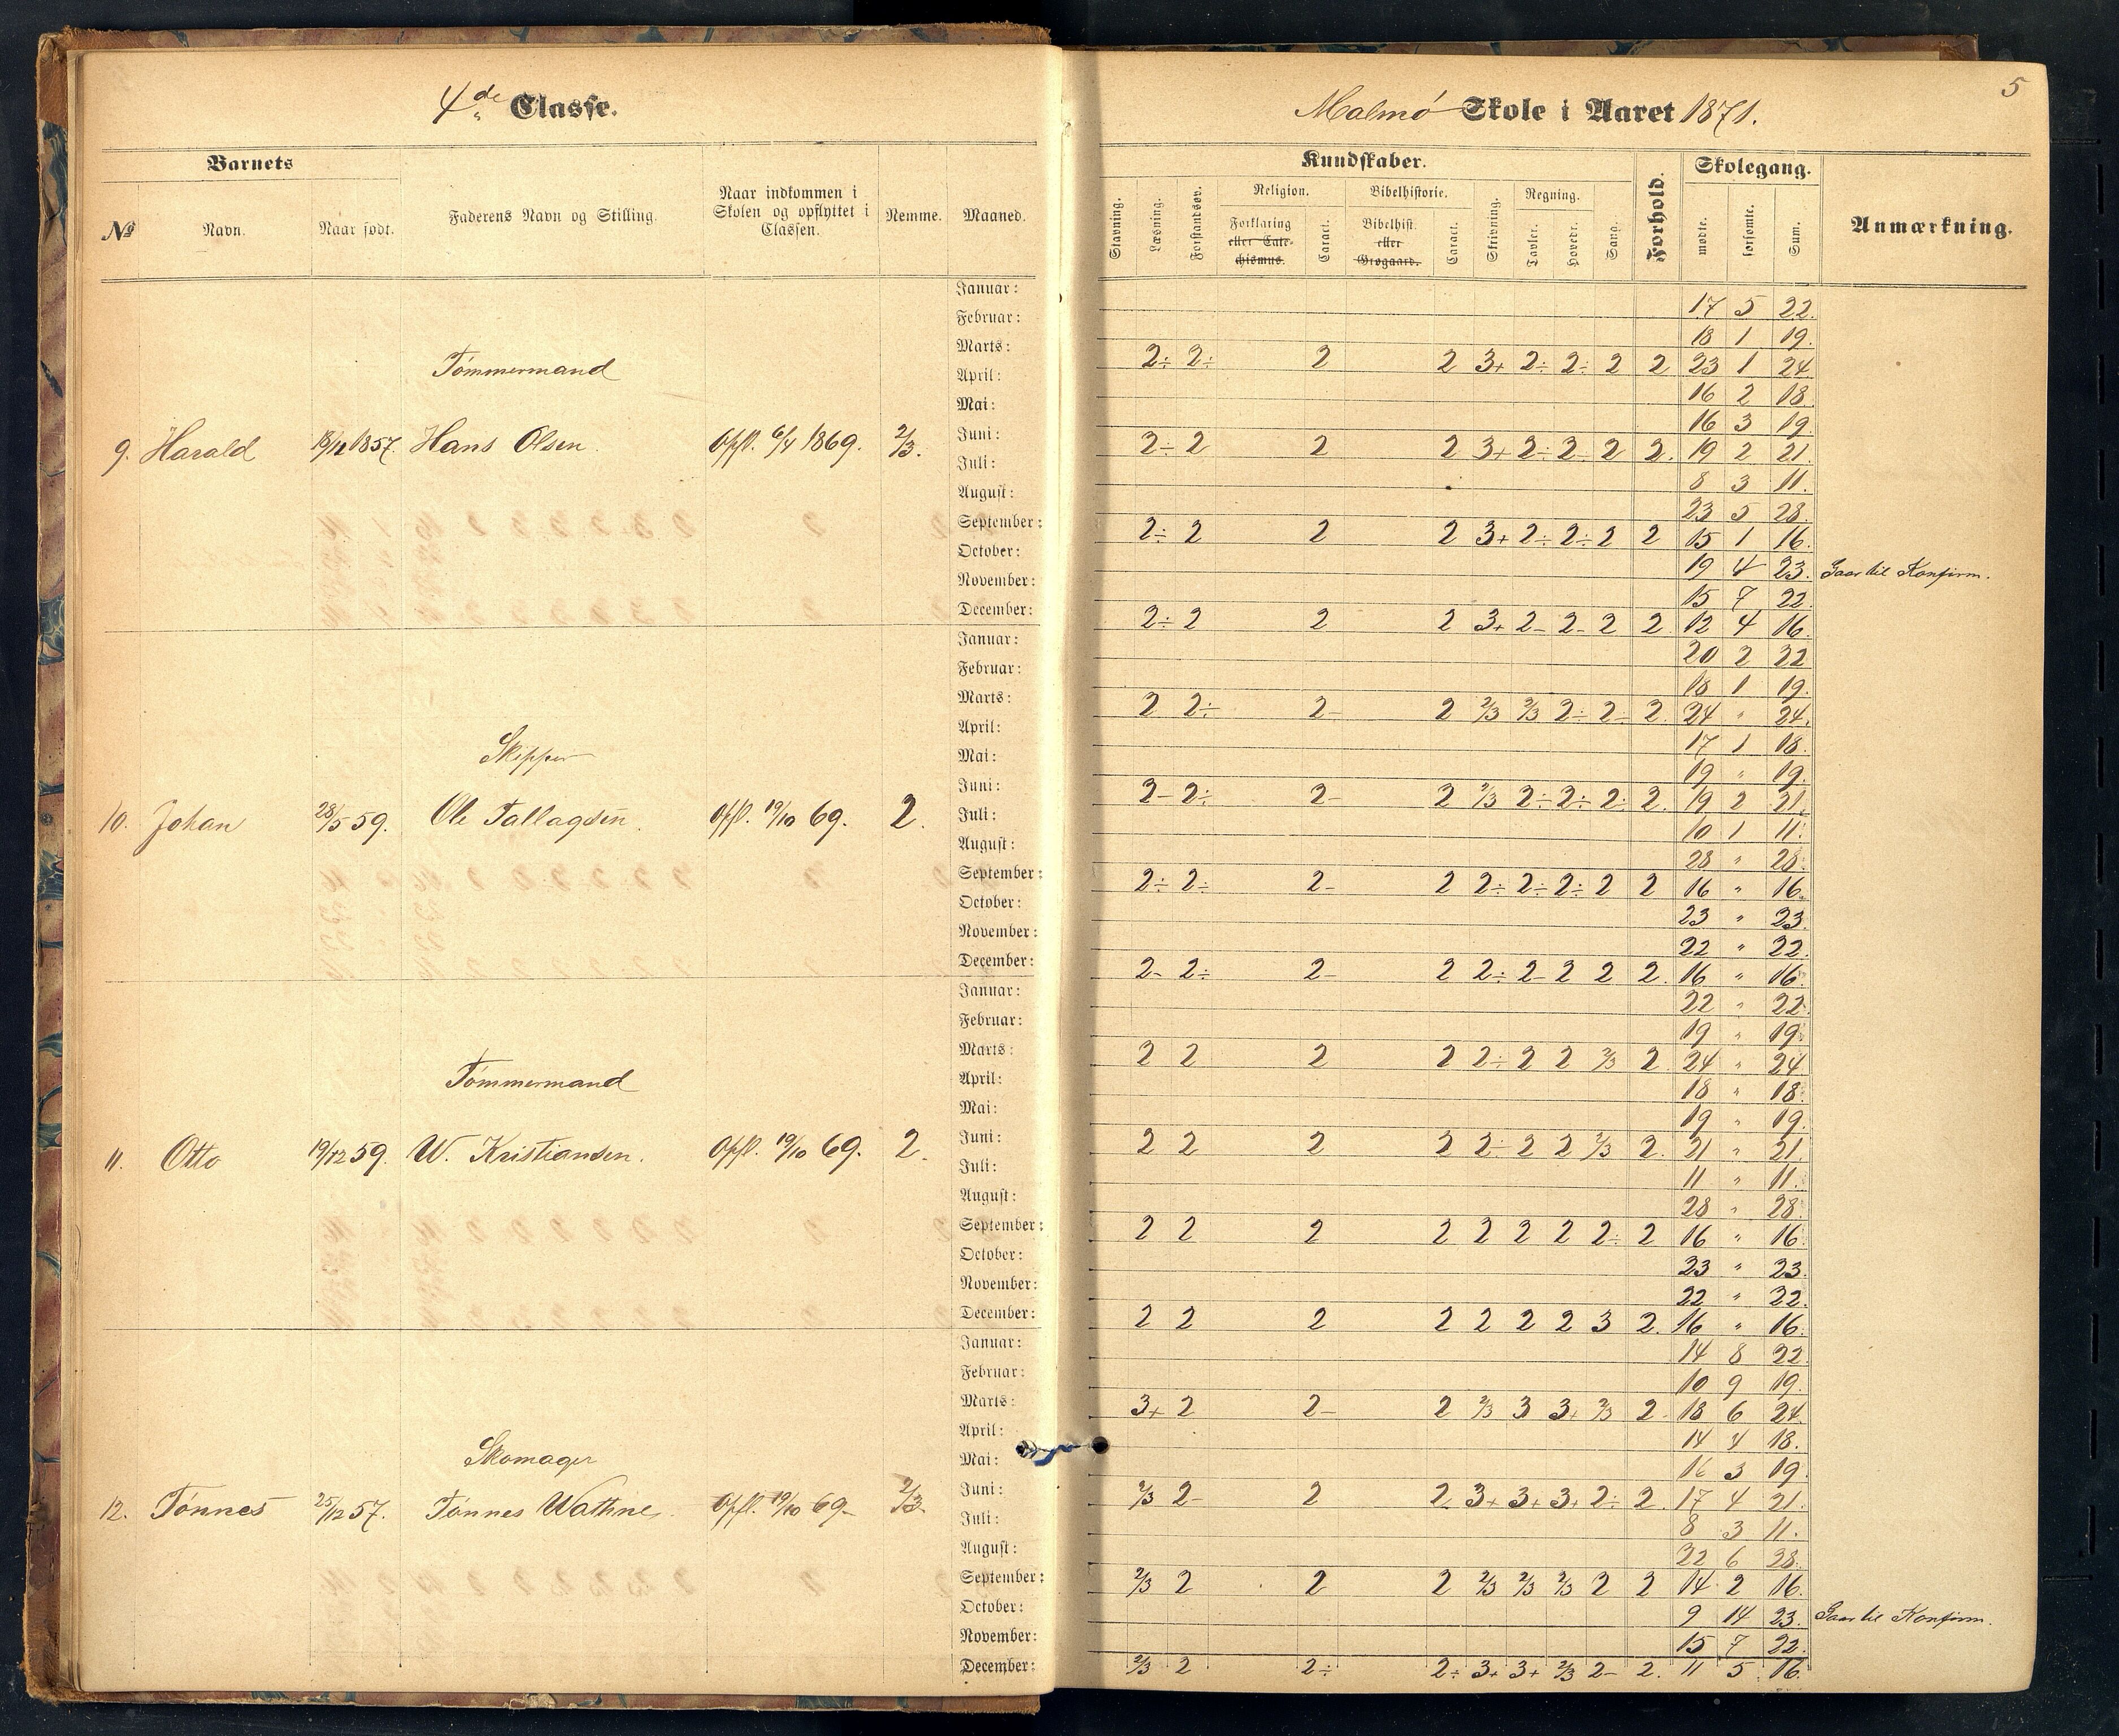 4de Classe.
Malmø Skole i Aaret 1871.
5
Barnets
№
Navn.
Naar født.
Faderens Navn og Stilling.
Naar indkommen i Skolen og opflyttet i Classen.
Nemme.
Maaned.
Kundskaber.
Stavning.
Læsning.
Forstandsøv.
Religion.
Forklaring eller Catechismus.
Caract.
Bibelhistorie.
Bibelhist. eller Grøgaard.
Caract.
Skrivning.
Regning.
Tavler.
Hovedr.
Sang.
Forhold.
Skolegang.
mødte.
forsømte.
Sum.
Anmærkning.
9. Harald 18/12 1857. Tømmermand Hans Olsen. Opfl. 6/4 1869. 2/3.
Januar: 17 5 22.
Februar: 18 1 19.
Marts: 2÷ 2÷ 2 2 3+ 2÷ 2÷ 2 2 23 1 24.
April: 16 2 18.
Mai: 16 3 19.
Juni: 2÷ 2 2 2 3+ 2÷ 2- 2 2. 19 2 21.
Juli: 8 3 11.
August: 23 5 28.
September: 2÷ 2 2 2 3+ 2÷ 2÷ 2 2 15 1 16.
October: 19 4 23. Gaar til Konfirm.
November: 15 7 22.
December: 2÷ 2 2 2 3+ 2- 2- 2 2. 12 4 16.
10. Johan 28/5 59. Skipper Ole Tallagsen. Opfl. 19/10 69. 2.
Januar: 20 2 22
Februar: 18 1 19.
Marts: 2 2÷ 2- 2 2/3 2/3 2÷ 2- 2. 24 " 24.
April: 17 1 18.
Mai: 19 " 19.
Juni: 2- 2÷ 2- 2 2/3 2÷ 2÷ 2- 2. 19 2 21.
Juli: 10 1 11.
August: 28 " 28.
September: 2÷ 2÷ 2- 2 2÷ 2÷ 2÷ 2 2 16 " 16.
October: 23 " 23.
November: 22 " 22.
December: 2- 2÷ 2- 2 2÷ 2- 2 2 2. 16 " 16.
11. Otto 19/12 59. Tømmermand W. Kristiansen. Opfl. 19/10 69. 2.
Januar: 22 " 22.
Februar: 19 " 19.
Marts: 2 2 2 2 2÷ 2 2 2/3 2. 24 " 24.
April: 18 " 18.
Mai: 19 " 19.
Juni: 2 2 2 2 2÷ 2 2 2/3 2. 21 " 21.
Juli: 11 " 11.
August: 28 " 28.
September: 2 2 2 2 2 2 2 2÷ 2 16 " 16.
October: 23 " 23.
November: 22 " 22.
December: 2 2 2 2 2 2 2 3 2. 16 " 16.
12. Tønnes 25/12 57. Skomager Tønnes Wathne. Opfl. 19/10 69. 2/3.
Januar: 14 8 22.
Februar: 10 9 19.
Marts: 3+ 2 2- 2 2/3 3 3+ 2/3 2. 18 6 24.
April: 14 4 18.
Mai: 16 3 19.
Juni: 2/3 2- 2 2 3+ 3+ 3+ 2÷ 2. 17 4 21.
Juli: 8 3 11.
August: 22 6 28.
September: 2/3 2 2 2 2/3 2/3 2/3 2 2 14 2 16.
October: 9 14 23. Gaar til Konfirm.
November: 15 7 22.
December: 2/3 2 2÷ 2÷ 3+ 3+ 2/3 2- 2. 11 5 16.